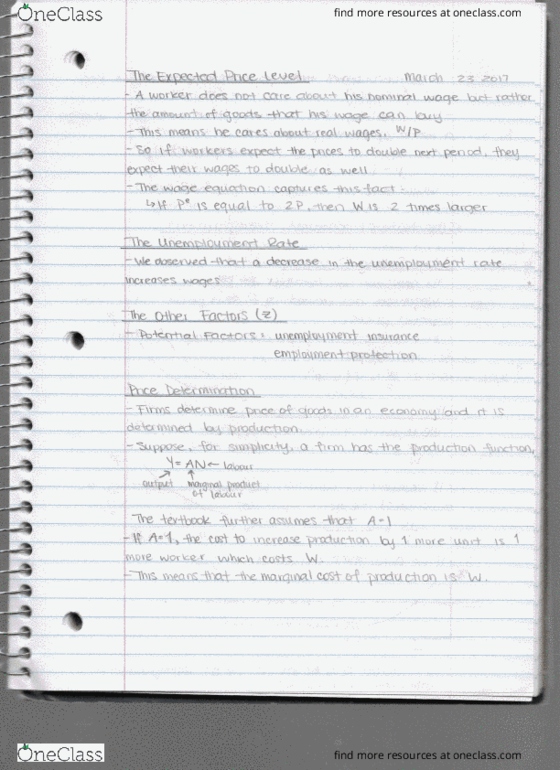 OneClass
find more resources at oneclass.com
The Expected Price Level March 23 2017
- A worker does not care about his nominal wage but rather
the amount of goods that his wage can buy
- This means he cares about real wages, W/P
- So if workers expect the prices to double next period, they
expect their wages to double as well
- The wage equation captures this fact
↳ If Pᵉ is equal to 2P, then W is 2 times larger
The Unemployment Rate
- We observed that a decrease in the unemployment rate
increases wages
The Other Factors (z)
- Potential Factors: unemployment insurance
employment protection
Price Determination
- Firms determine price of goods in an economy and it is
determined by production.
- Suppose, for simplicity, a firm has the production function,
Y = AN ← labour
output marginal product
of labour
The textbook further assumes that A=1
- If A=1, the cost to increase production by 1 more unit is 1
more worker which costs W.
- This means that the marginal cost of production is W.
OneClass
find more resources at oneclass.com